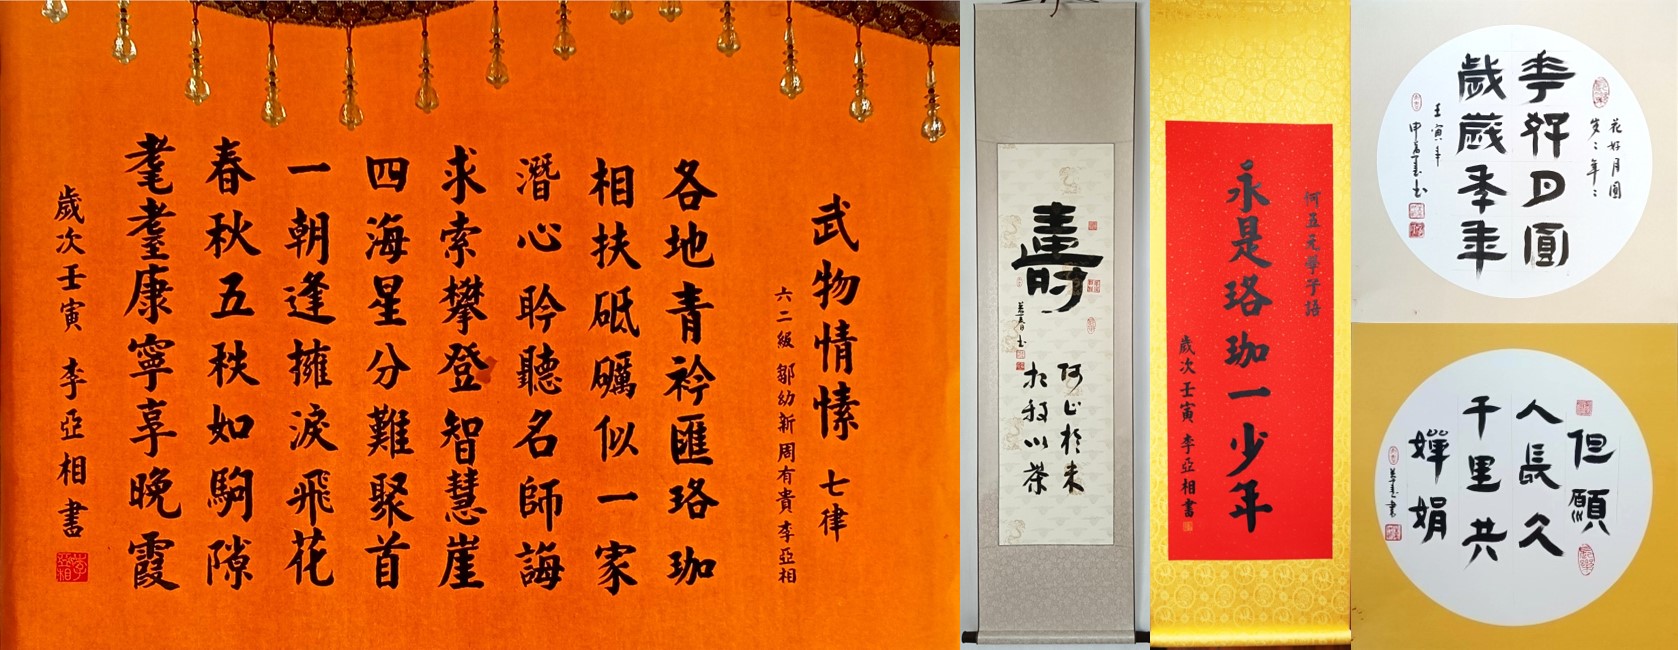 武物情愫 七律
六二級 鄒幼新 周有貴 李亞相
各地青衿匯珞珈
相扶砥礪似一家
潛心聆聽名師誨
求索攀登智慧崖
四海星分難聚首
一朝逢擁淚飛花
春秋五秩如駒隙
耄耋康寧享晚霞
歲次壬寅 李亞相書
壽
何止於米
相期以茶
何五元學子語
永是珞珈一少年
歲次壬寅 李亞相書
花好月圓
岁〻年〻
花好月圓
歲歲年年
壬寅年
但願
人長久
千里共
嬋娟